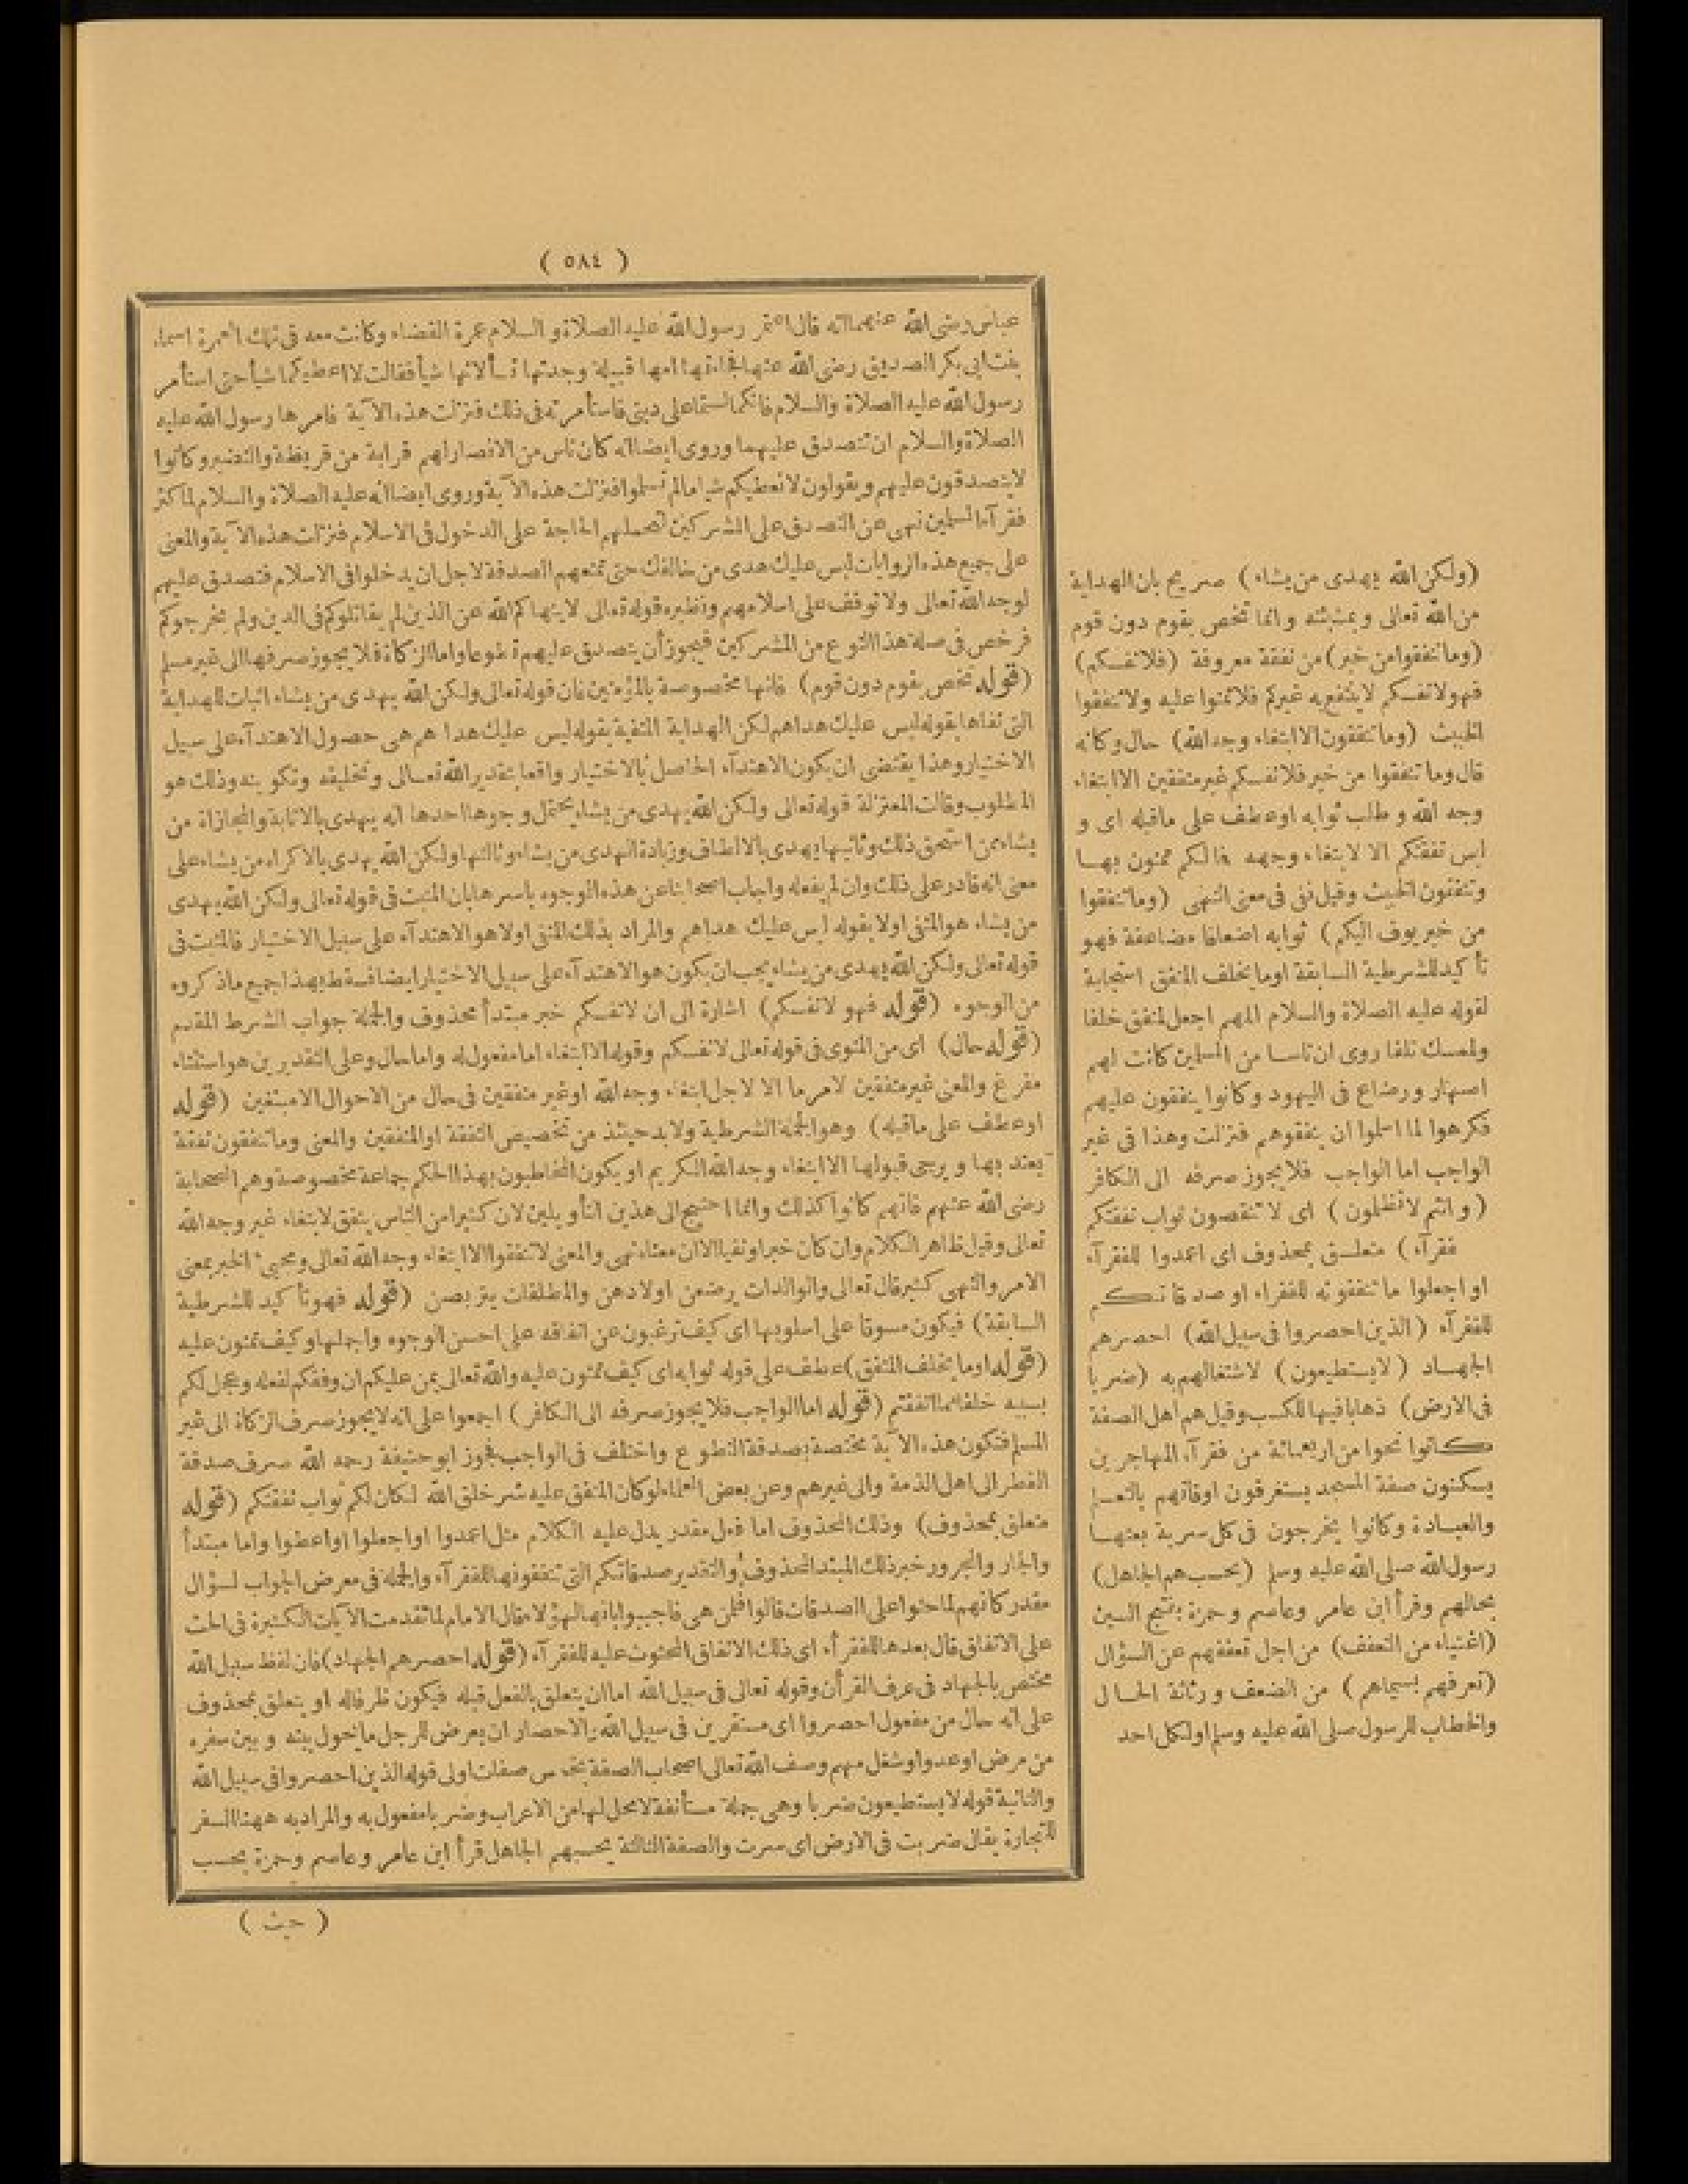 ( ٥٨٤ )
عباس رضى الله عنهما انه قال اعتمر رسول الله عليه الصلاة والسلام عمرة القضاء وكانت معه فى تلك العمرة اسماء
بنت ابى بكر الصديق رضى الله عنها فجاءتها امها قتيلة وجدتها تسألانها شيأ فقالت لا اعطيكما شيأ حتى استأمر
رسول الله عليه الصلاة والسلام فانكما لستما على دينى فاستأمرته فى ذلك فنزلت هذه الآية فامرها رسول الله عليه
الصلاة والسلام ان تتصدق عليهما وروى ايضا انه كان ناس من الانصار لهم قرابة من قريظة والنضير وكانوا
لا يتصدقون عليهم ويقولون لا نعطيكم شيأ مالم تسلموا فنزلت هذه الآية وروى ايضا انه عليه الصلاة والسلام لما كثر
فقرآء المسلمين نهى عن التصدق على المشركين لتحملهم الحاجة على الدخول فى الاسلام فنزلت هذه الآية والمعنى
على جميع هذه الروايات ليس عليك هدى من خالفك حتى تمنعهم الصدقة لاجل ان يدخلوا فى الاسلام فتصدق عليهم
لوجه الله تعالى ولا توقف على اسلامهم ونظيره قوله تعالى لا ينهاكم الله عن الذين لم يقاتلوكم فى الدين ولم يخرجوكم
فرخص فى صلة هذا النوع من المشركين فيجوز أن يتصدق عليهم تطوعا واما الزكاة فلا يجوز صرفها الى غير مسلم
(قوله تخص بقوم دون قوم) فانها مخصوصة بالمؤمنين فان قوله تعالى ولكن الله يهدى من يشاء اثبات للهداية
التى نفاها بقوله ليس عليك هداهم لكن الهداية المنفية بقوله ليس عليك هداهم هى حصول الاهتدآء على سبيل
الاختيار وهذا يقتضى ان يكون الاهتدآء الحاصل بالاختيار واقعا بتقدير الله تعالى وتخليقه وتكوينه وذلك هو
المطلوب وقالت المعتزلة قوله تعالى ولكن الله يهدى من يشاء يحتمل وجوها احدها انه يهدى بالاثابة والمجازاة من
يشاء ممن استحق ذلك وثانيها يهدى بالالطاف وزيادة الهدى من يشاء وثالثها ولكن الله يهدى بالاكراه من يشاء على
معنى انه قادر على ذلك وان لم يفعله واجاب اصحابنا عن هذه الوجوه باسرها بان المثبت فى قوله تعالى ولكن الله يهدى
من يشاء هو المنفى اولا بقوله ليس عليك هداهم والمراد بذلك المنفى اولا هو الاهتدآء على سبيل الاختيار فالمثبت فى
قوله تعالى ولكن الله يهدى من يشاء يجب ان يكون هو الاهتدآء على سبيل الاختيار ايضا فسقط بهذا جميع ماذكروه
من الوجوه (قوله فهو لانفسكم) اشارة الى ان لانفسكم خبر مبتدأ محذوف والجملة جواب الشرط المقدم
(قوله حال) اى من المنوى فى قوله تعالى لانفسكم وقوله الا ابتغاء اما مفعول له واما حال وعلى التقديرين هو استثناء
مفرغ والمعنى غير منفقين لامر ما الا لاجل ابتغاء وجه الله او غير منفقين فى حال من الاحوال الا مبتغين (قوله
او عطف على ماقبله) وهو الجملة الشرطية ولا بد حينئذ من تخصيص النفقة او المنفقين والمعنى وما تنفقون نفقة
يعتد بها ويرجى قبولها الا ابتغاء وجه الله الكريم او يكون المخاطبون بهذا الحكم جماعة مخصوصة وهم الصحابة
رضى الله عنهم فانهم كانوا كذلك وانما احتيج الى هذين التأويلين لان كثيرا من الناس ينفق لابتغاء غير وجه الله
تعالى وقيل ظاهر الكلام وان كان خبرا ونفيا الا ان معناه نهى والمعنى لا تنفقوا الا ابتغاء وجه الله تعالى ومجيئ الخبر بمعنى
الامر والنهى كثير قال تعالى والوالدات يرضعن اولادهن والمطلقات يتربصن (قوله فهو تأكيد للشرطية
السابقة) فيكون مسوقا على اسلوبها اى كيف ترغبون عن انفاقه على احسن الوجوه واجملها وكيف تمنون عليه
(قوله او ما يخلف المنفق) عطف على قوله ثوابه اى كيف تمنون عليه والله تعالى يمن عليكم ان وفقكم لفعله وعجل لكم
بسببه خلفا مما انفقتم (قوله اما الواجب فلا يجوز صرفه الى الكافر) اجمعوا على انه لا يجوز صرف الزكاة الى غير
المسلم فتكون هذه الآية مختصة بصدقة التطوع واختلف فى الواجب فجوز ابو حنيفة رحمه الله صرف صدقة
الفطر الى اهل الذمة والى غيرهم وعن بعض العلماء لو كان المنفق عليه شر خلق الله لكان لكم ثواب نفقتكم (قوله
متعلق بمحذوف) وذلك المحذوف اما فعل مقدر يدل عليه الكلام مثل اعمدوا او اجعلوا او اعطوا واما مبتدأ
والجار والمجرور خبر ذلك المبتدا المحذوف والتقدير صدقاتكم التى تنفقونها للفقرآء والجملة فى معرض الجواب لسؤال
مقدر كأنهم لما حثوا على الصدقات قالوا فلمن هى فاجيبوا بانها لهؤلاء قال الامام لما تقدمت الآيات الكثيرة فى الحث
على الانفاق قال بعدها للفقرآء اى ذلك الانفاق المحثوث عليه للفقرآء (قوله احصرهم الجهاد) فان لفظ سبيل الله
مختص بالجهاد فى عرف القرأن وقوله تعالى فى سبيل الله اما ان يتعلق بالفعل قبله فيكون ظرفا له او يتعلق بمحذوف
على انه حال من مفعول احصروا اى مستقرين فى سبيل الله والاحصار ان يعرض للرجل ما يحول بينه وبين سفره
من مرض او عدو او شغل مهم وصف الله تعالى اصحاب الصفة بخمس صفات اولى قوله الذين احصروا فى سبيل الله
والثانية قوله لا يستطيعون ضربا وهى جملة مستأنفة لا محل لها من الاعراب وضربا مفعول به والمراد به ههنا السفر
للتجارة يقال ضربت فى الارض اى سرت والصفة الثالثة يحسبهم الجاهل قرأ ابن عامر وعاصم وحمزة يحسب
( حيث )
(ولكن الله يهدى من يشاء) صريح بان الهداية
من الله تعالى وبمشيئته وانما تخص بقوم دون قوم
(وما تنفقوا من خير) من نفقة معروفة (فلانفسكم)
فهو لانفسكم لا ينتفع به غيركم فلا تمنوا عليه ولا تنفقوا
الخبيث (وما تنفقون الا ابتغاء وجه الله) حال وكأنه
قال وما تنفقوا من خير فلانفسكم غير منفقين الا ابتغاء
وجه الله وطلب ثوابه او عطف على ماقبله اى و
ليس نفقتكم الا لابتغاء وجهه فما لكم تمنون بها
وتنفقون الخبيث وقيل نفى فى معنى النهى (وما تنفقوا
من خير يوف اليكم) ثوابه اضعافا مضاعفة فهو
تأكيد للشرطية السابقة او ما يخلف المنفق استجابة
لقوله عليه الصلاة والسلام اللهم اجعل لمنفق خلفا
ولممسك تلفا روى ان ناسا من المسلمين كانت لهم
اصهار ورضاع فى اليهود وكانوا ينفقون عليهم
فكرهوا لما اسلموا ان ينفقوهم فنزلت وهذا فى غير
الواجب اما الواجب فلا يجوز صرفه الى الكافر
(وانتم لا تظلمون) اى لا تنقصون ثواب نفقتكم
فقرآء) متعلق بمحذوف اى اعمدوا للفقرآء
او اجعلوا ما تنفقونه للفقراء او صدقاتكم
للفقرآء (الذين احصروا فى سبيل الله) احصرهم
الجهاد (لا يستطيعون) لاشتغالهم به (ضربا
فى الارض) ذهابا فيها للكسب وقيل هم اهل الصفة
كانوا نحوا من اربعمائة من فقرآء المهاجرين
يسكنون صفة المسجد يستغرقون اوقاتهم بالتعلم
والعبادة وكانوا يخرجون فى كل سرية بعثها
رسول الله صلى الله عليه وسلم (يحسبهم الجاهل)
بحالهم وقرأ ابن عامر وعاصم وحمزة بفتح السين
(اغنياء من التعفف) من اجل تعففهم عن السؤال
(تعرفهم بسيماهم) من الضعف ورثاثة الحال
والخطاب للرسول صلى الله عليه وسلم او لكل احد